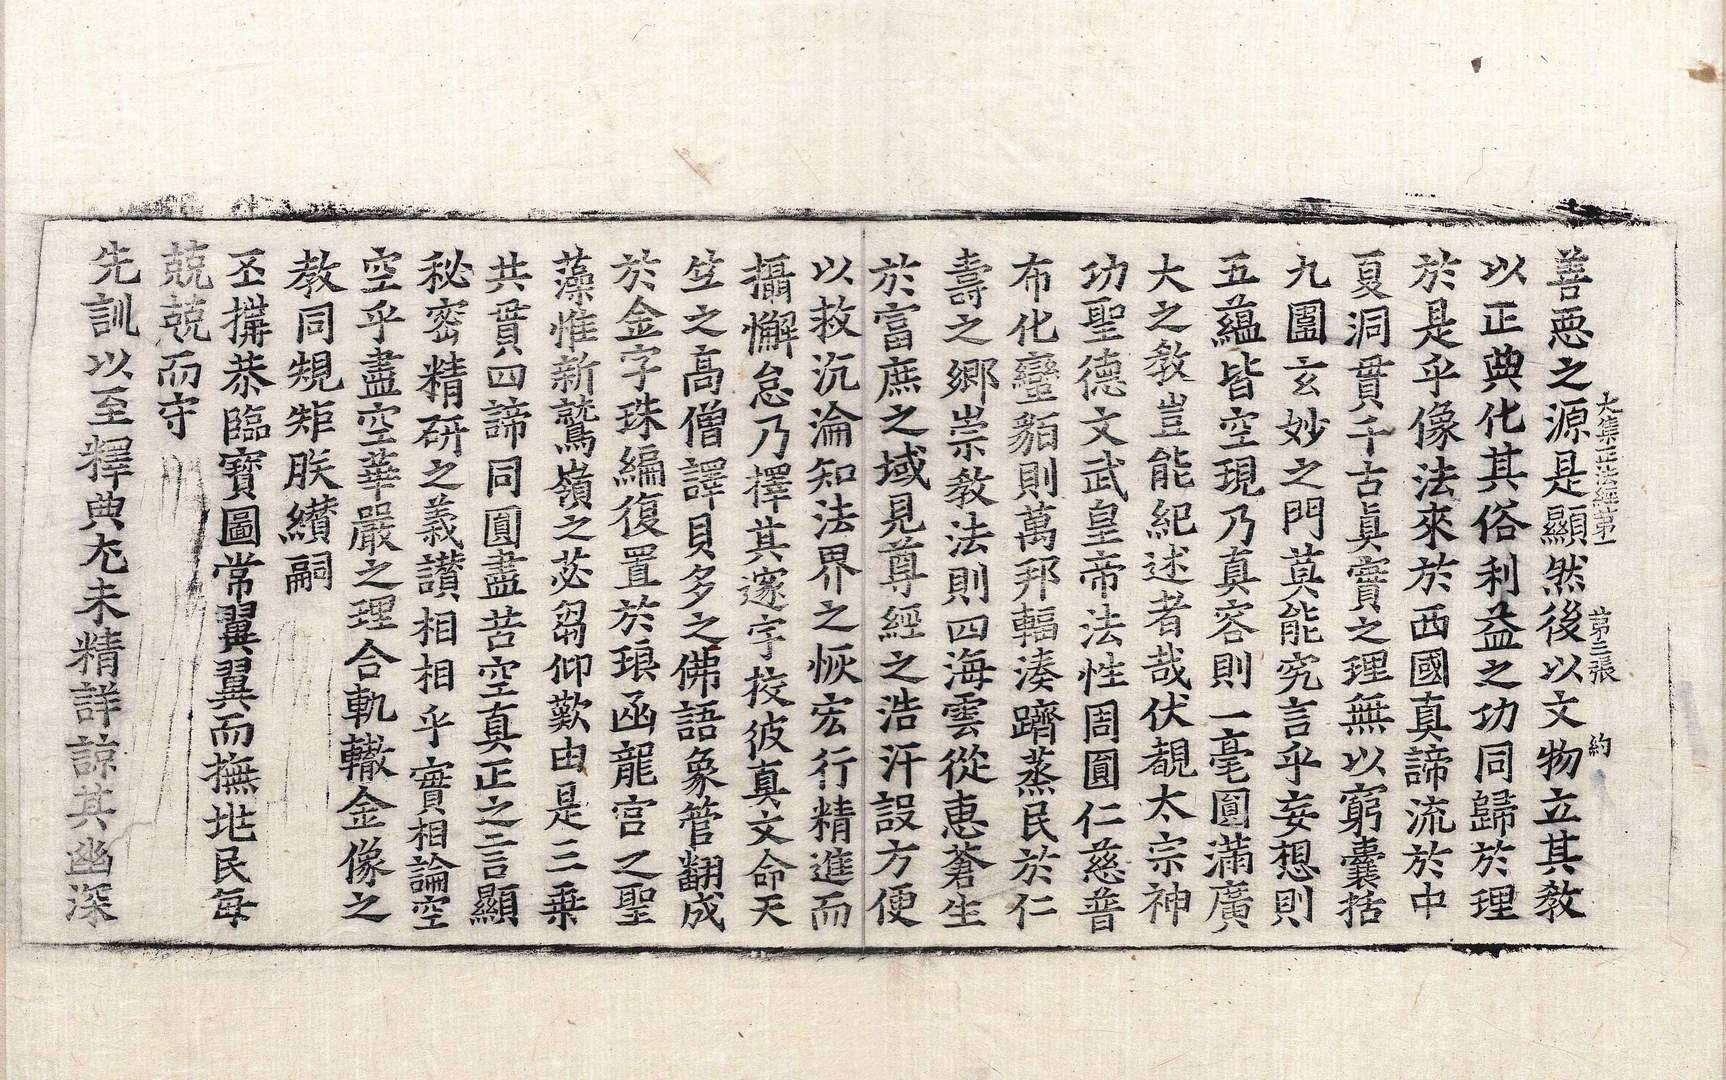 大集正法經第一　第三張　約
善惡之源是顯然後以文物立其教
以正典化其俗利益之功同歸於理
於是乎像法來於西國真諦流於中
夏洞貫千古眞實之理無以窮囊括
九圍玄妙之門莫能究言乎妄想則
五蘊皆空現乃真容則一毫圓滿廣
大之教豈能紀述者哉伏覩太宗神
功聖德文武皇帝法性周圓仁慈普
布化蠻貊則萬邦輻湊躋蒸民於仁
壽之鄉崇教法則四海雲從惠蒼生
於富庶之域見尊經之浩汗設方便
以救沉淪知法界之恢宏行精進而
攝懈怠乃擇其邃宇按彼真文命天
竺之高僧譯貝多之佛語象管翻成
於金字珠編復置於琅函龍宮之聖
藻惟新鷲嶺之苾芻仰歎由是三乗
共貫四諦同圓盡苦空真正之言顯
秘密精研之義讃相相乎實相論空
空乎盡空華嚴之理合軌轍金像之
教同規矩朕纘嗣
丕搆恭臨寶圖常翼翼而撫兆民每
兢兢而守
先訓以至釋典尤未精詳諒其幽深